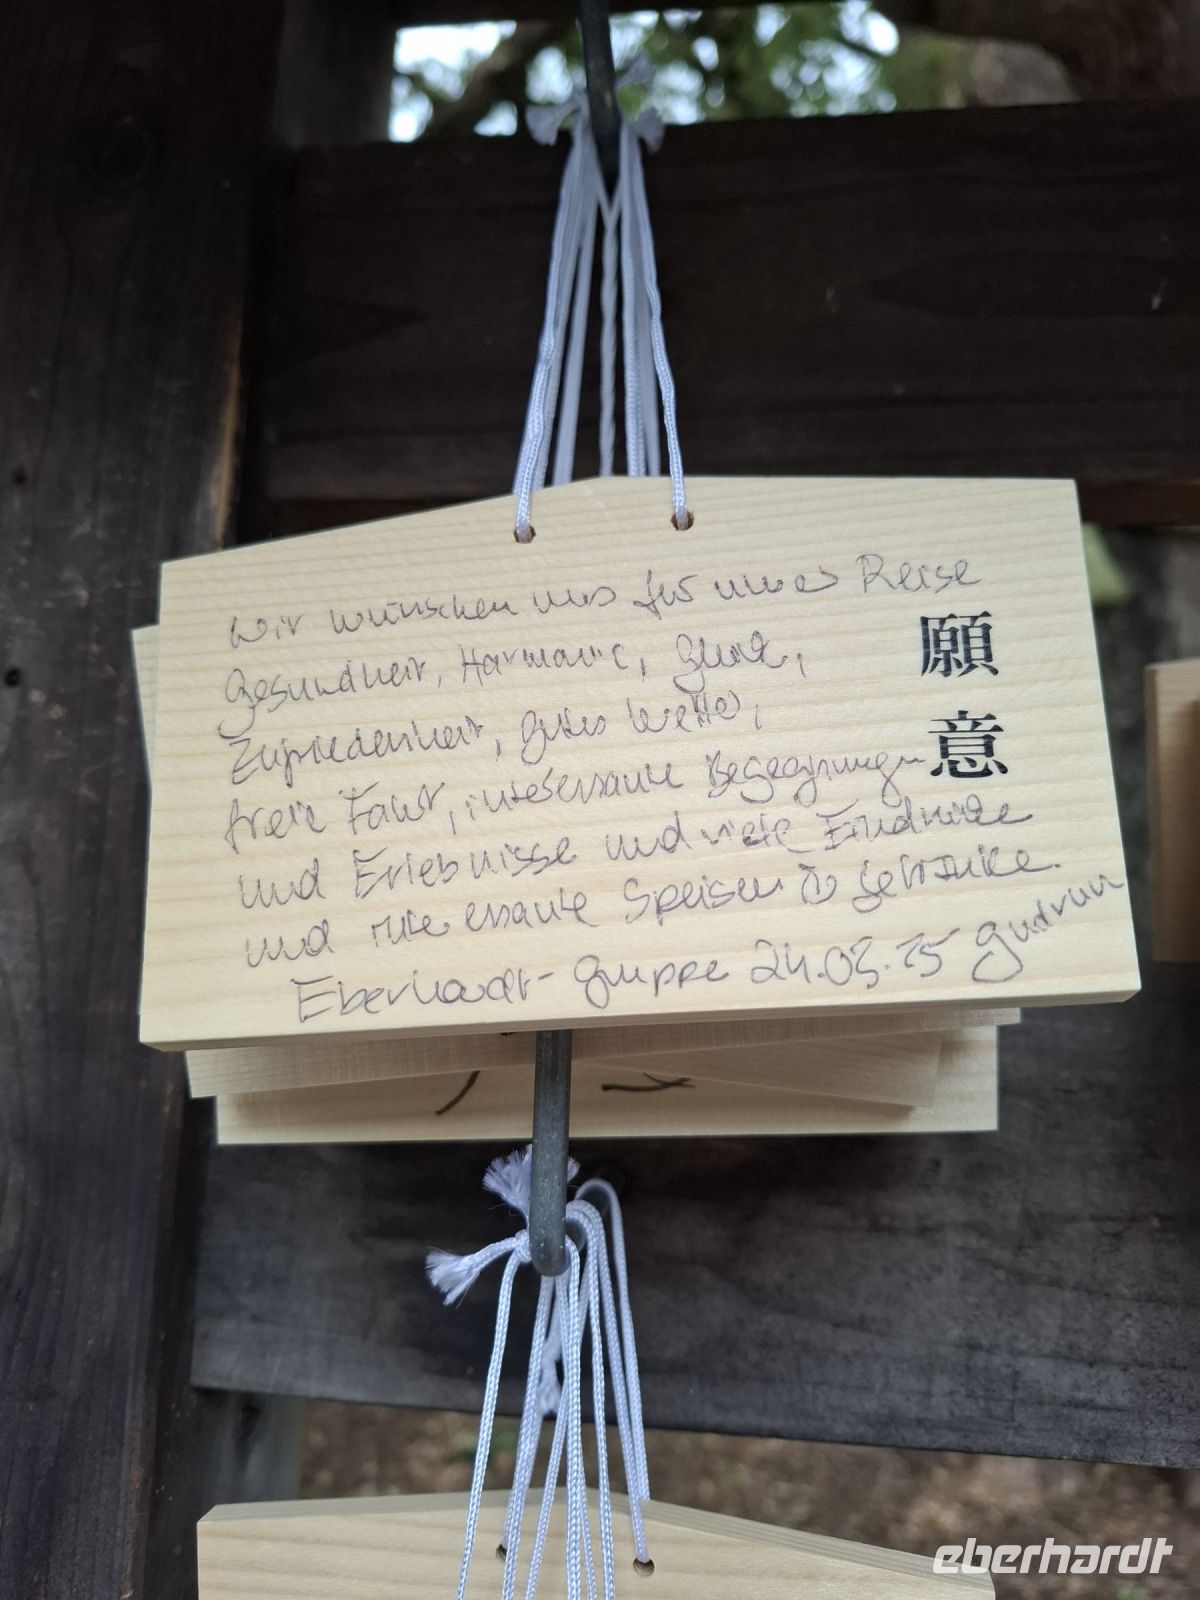 Wir wünschen uns für unsere Reise
Gesundheit, Harmonie, Glück,
Zufriedenheit, gutes Wetter,
freie Fahrt, interessante Begegnungen
und Erlebnisse und viele Eindrücke
und interessante Speisen & Getränke.
Eberhardt-Gruppe 24.03.25 Gudrun
願意
eberhardt